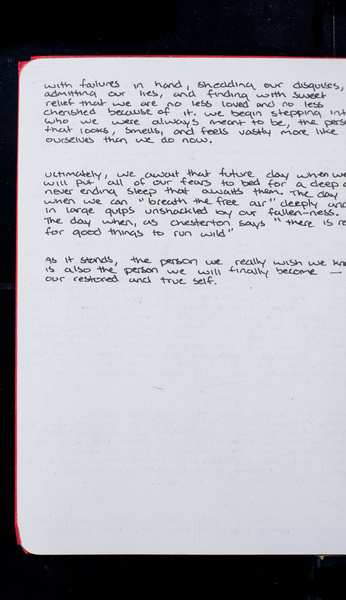 with failures in hand, shedding our disguises,
admitting our lies, and finding with sweet
relief that we are no less loved and no less
cherished because of it, we begin stepping int
who we were always meant to be, the pers
that looks, smells, and feels vastly more like
ourselves then we do now.
Ultimately, we await that future day when we
will put all of our fears to bed for a deep a
never ending sleep that awaits them. The day
when we can "breath the free air" deeply and
in large gulps unshackled by our fallen-ness.
The day when, as chesterton says "there is ro
for good things to run wild"
As it stands, the person we really wish we kne
is also the person we will finally become —
our restored and true self.